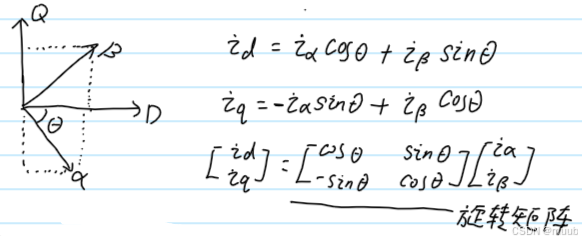 Q
β
D
θ
α
i_d = i_α cosθ + i_β sinθ
i_q = -i_α sinθ + i_β cosθ
[i_d i_q] = [cosθ sinθ -sinθ cosθ] [i_α i_β]
旋转矩阵
CSDN @muub